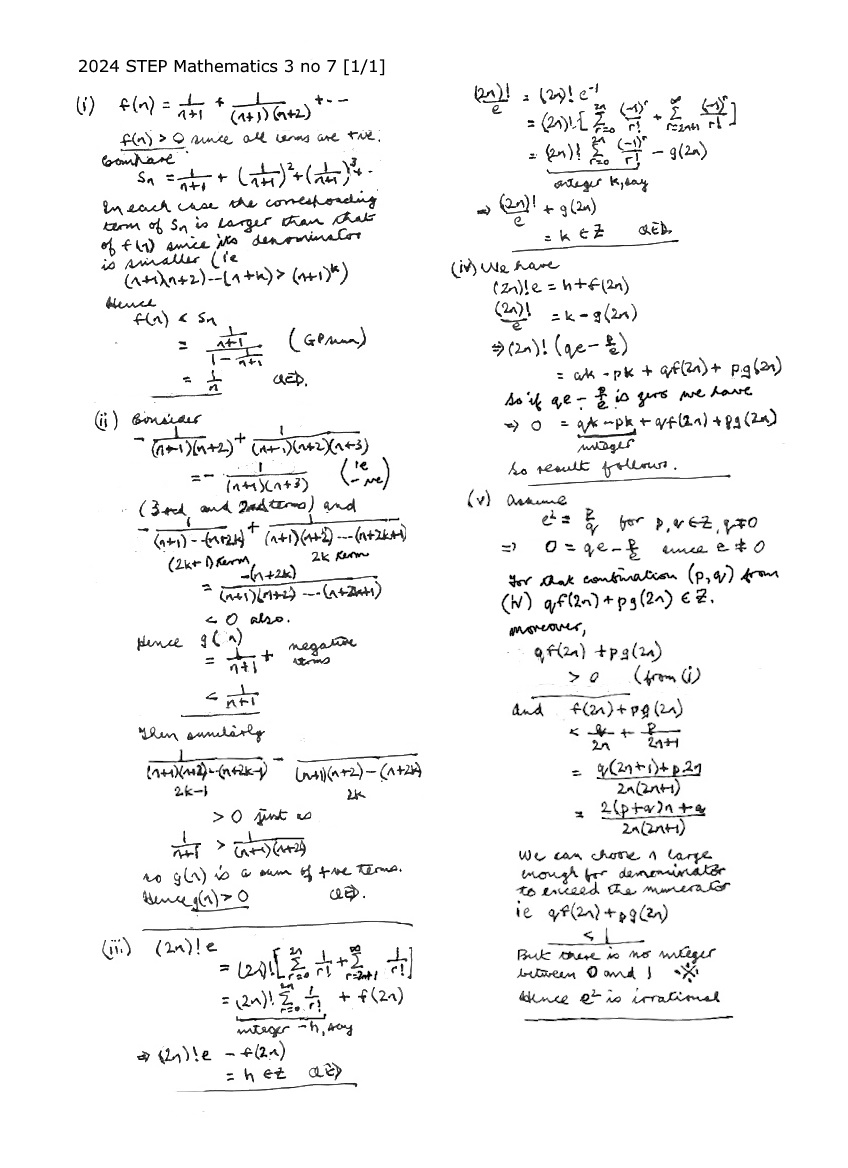 2024 STEP Mathematics 3 no 7 [1/1]
(i) f(n) = 1/(n+1) + 1/((n+1)(n+2)) + ...
f(n) > 0 since all terms are +ve.
Compare
Sn = 1/(n+1) + (1/(n+1))² + (1/(n+1))³ + ..
In each case the corresponding
term of Sn is larger than that
of f(n) since its denominator
is smaller (ie
(n+1)(n+2)--(n+k) > (n+1)^k)
Hence
f(n) < Sn
= (1/(n+1))/(1 - 1/(n+1)) (GP sum)
= 1/n QED.
(ii) Consider
- 1/((n+1)(n+2)) + 1/((n+1)(n+2)(n+3))
= - 1/((n+1)(n+3)) (ie -ve)
(3rd and 2nd terms) and
- 1/((n+1)--(n+2k)) + 1/((n+1)(n+2)---(n+2k+1))
(2k+1) term 2k term
= -(n+2k)/((n+1)(n+2)---(n+2k+1))
< 0 also.
Hence g(n)
= 1/(n+1) + negative terms
< 1/(n+1)
Then similarly
1/((n+1)(n+2)--(n+2k-1)) - 1/((n+1)(n+2)--(n+2k))
2k-1 2k
> 0 just as
1/(n+1) > 1/((n+1)(n+2))
so g(n) is a sum of +ve terms.
Hence g(n) > 0 QED.
(iii) (2n)! e
= (2n)! [∑_{r=0}^{2n} 1/r! + ∑_{r=2n+1}^{∞} 1/r!]
= (2n)! ∑_{r=0}^{2n} 1/r! + f(2n)
integer - h, say
⇒ (2n)! e - f(2n)
= h ∈ Z QED
(2n)!/e = (2n)! e⁻¹
= (2n)! [∑_{r=0}^{2n} (-1)^r/r! + ∑_{r=2n+1}^{∞} (-1)^r/r!]
= (2n)! ∑_{r=0}^{2n} (-1)^r/r! - g(2n)
integer k, say
⇒ (2n)!/e + g(2n)
= k ∈ Z QED.
(iv) We have
(2n)! e = h + f(2n)
(2n)!/e = k - g(2n)
⇒ (2n)! (qe - p/e)
= qk - pk + qf(2n) + pg(2n)
So if qe - p/e is zero we have
⇒ 0 = qk - pk + qf(2n) + pg(2n)
integer
So result follows.
(v) Assume
e² = p/q for p, q ∈ Z, q ≠ 0
⇒ 0 = qe - p/e since e ≠ 0
For that combination (p, q) from
(iv) qf(2n) + pg(2n) ∈ Z.
moreover,
qf(2n) + pg(2n)
> 0 (from (i)
and f(2n) + pg(2n)
< q/2n + p/(2n+1)
= (q(2n+1) + p2n)/(2n(2n+1))
= (2(p+q)n + q)/(2n(2n+1))
We can choose n large
enough for denominator
to exceed the numerator
ie qf(2n) + pg(2n)
< 1
But there is no integer
between 0 and 1 ※
Hence e² is irrational